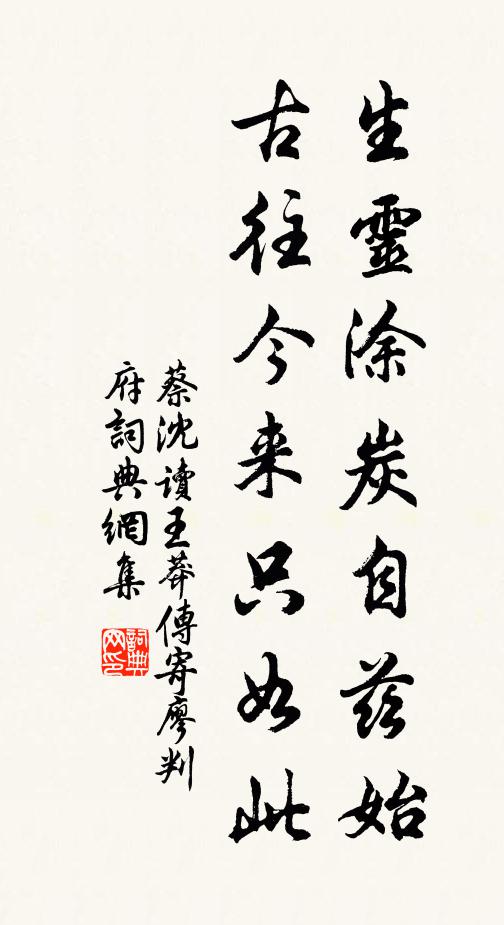 生靈涂炭自茲始
古往今来只如此
蔡沈讀王莽傳寄廖判
府詞典網集
詞典网印